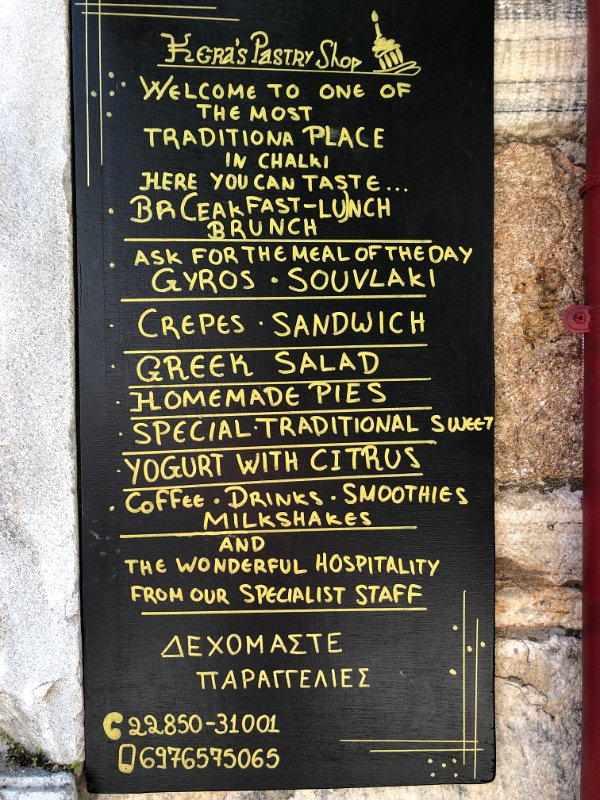 KGRA'S PASTRY SHOP
WELCOME TO ONE OF
THE MOST
TRADITIONA PLACE
IN CHALKI
HERE YOU CAN TASTE...
BRCEAKFAST-LUNCH
BRUNCH
ASK FOR THE MEAL OF THE DAY
GYROS · SOUVLAKI
CREPES · SANDWICH
GREEK SALAD
HOMEMADE PIES
SPECIAL·TRADITIONAL SWEET
YOGURT WITH CITRUS
COFFEE · DRINKS · SMOOTHIES
MILKSHAKES
AND
THE WONDERFUL HOSPITALITY
FROM OUR SPECIALIST STAFF
ΔΕΧΟΜΑΣΤΕ
ΠΑΡΑΓΓΕΛΙΕΣ
22850-31001
6976575065